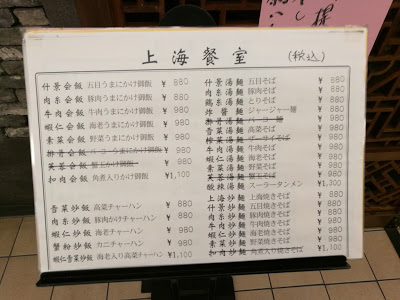 上海餐室 (税込)
什景会飯 五目うまにかけ御飯 ¥ 880
肉糸会飯 豚肉うまにかけ御飯 ¥ 880
牛肉会飯 牛肉うまにかけ御飯 ¥ 980
蝦仁会飯 海老うまにかけ御飯 ¥ 980
素菜会飯 野菜うまにかけ御飯 ¥ 980
排骨会飯 パーコーうまにかけ御飯 ¥ 980
芙蓉会飯 蟹玉かけ御飯 ¥ 980
扣肉会飯 角煮入りかけ御飯 ¥1,100
昔菜炒飯 高菜チャーハン ¥ 880
肉糸炒飯 豚肉かけチャーハン ¥ 980
蝦仁炒飯 海老チャーハン ¥ 980
蟹粉炒飯 カニチャーハン ¥ 980
蝦仁昔菜炒飯 海老入り高菜チャーハン ¥1,100
什景湯麺 五目そば ¥ 880
肉糸湯麺 豚肉そば ¥ 880
鶏糸湯麺 とりそば ¥ 880
炸醤麺 ジャージャー麺 ¥ 880
排骨湯麺 パーコー麺 ¥ 980
昔菜湯麺 高菜そば ¥ 980
搾菜湯麺 ザーサイそば ¥ 980
牛肉湯麺 牛肉そば ¥ 980
蝦仁湯麺 海老そば ¥ 980
素菜湯麺 野菜そば ¥ 980
芙蓉湯麺 蟹玉そば ¥ 980
酸辣湯麺 スーラータンメン ¥1,300
上海炒麺 上海焼きそば ¥ 880
什景炒麺 五目焼きそば ¥ 880
肉糸炒麺 豚肉焼きそば ¥ 980
牛肉炒麺 牛肉焼きそば ¥ 980
蝦仁炒麺 海老焼きそば ¥ 980
素菜炒麺 野菜焼きそば ¥ 980
扣肉炒麺 角煮入り焼そば ¥1,100